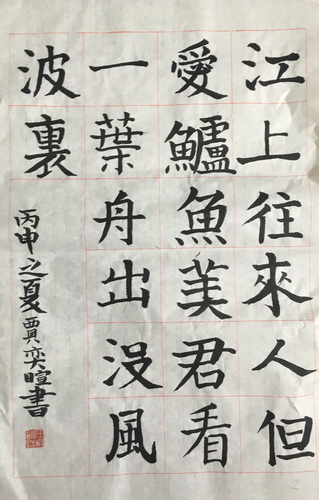 江上往來人但
愛鱸魚美君看
一葉舟出没風
波裏
丙申之夏賈奕暄書